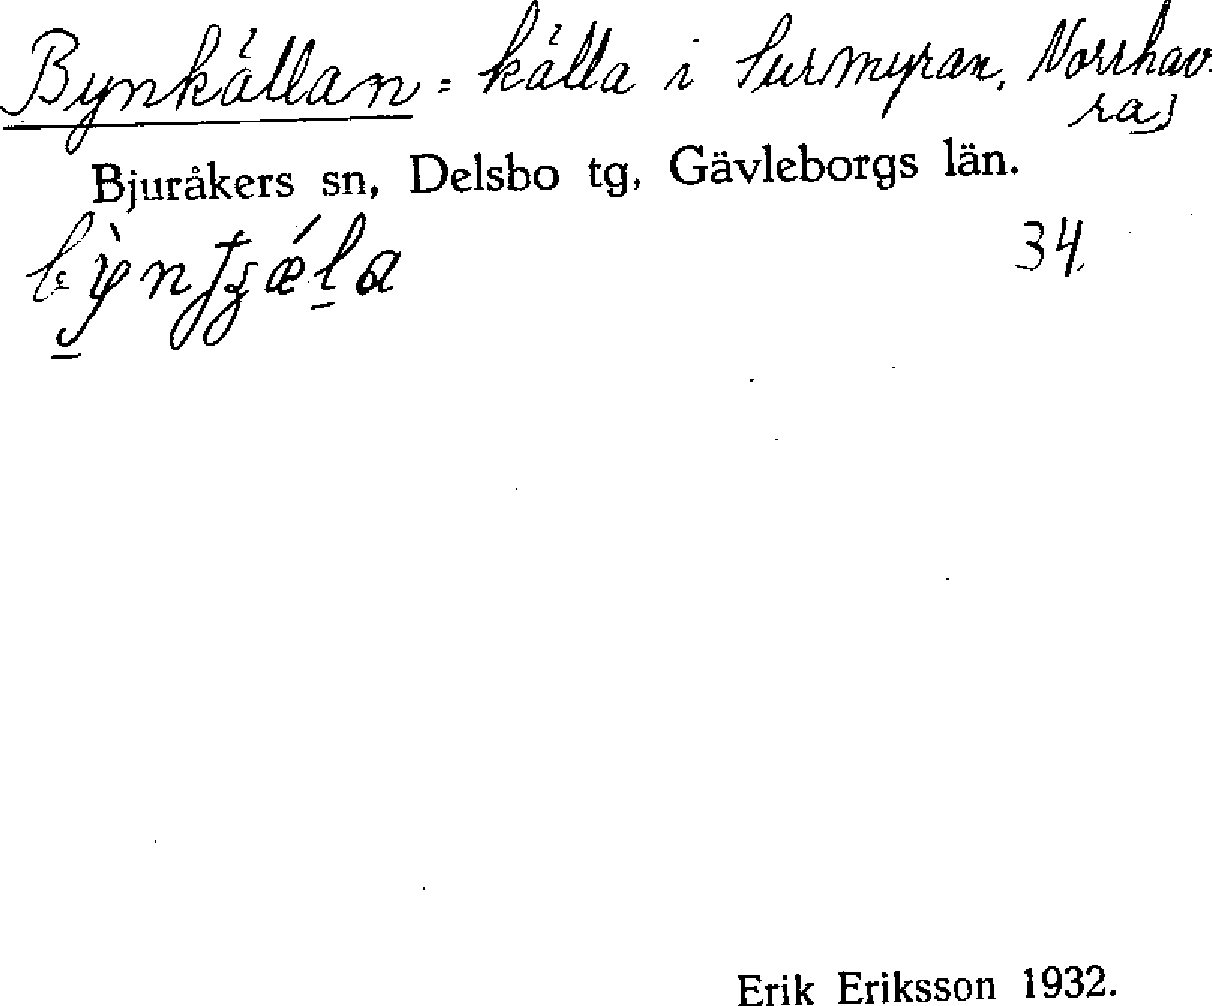 Bynkällan = källa i Surmyran, Norrhav-
ra,
Bjuråkers sn, Delsbo tg, Gävleborgs län.
34.
Erik Eriksson 1932.